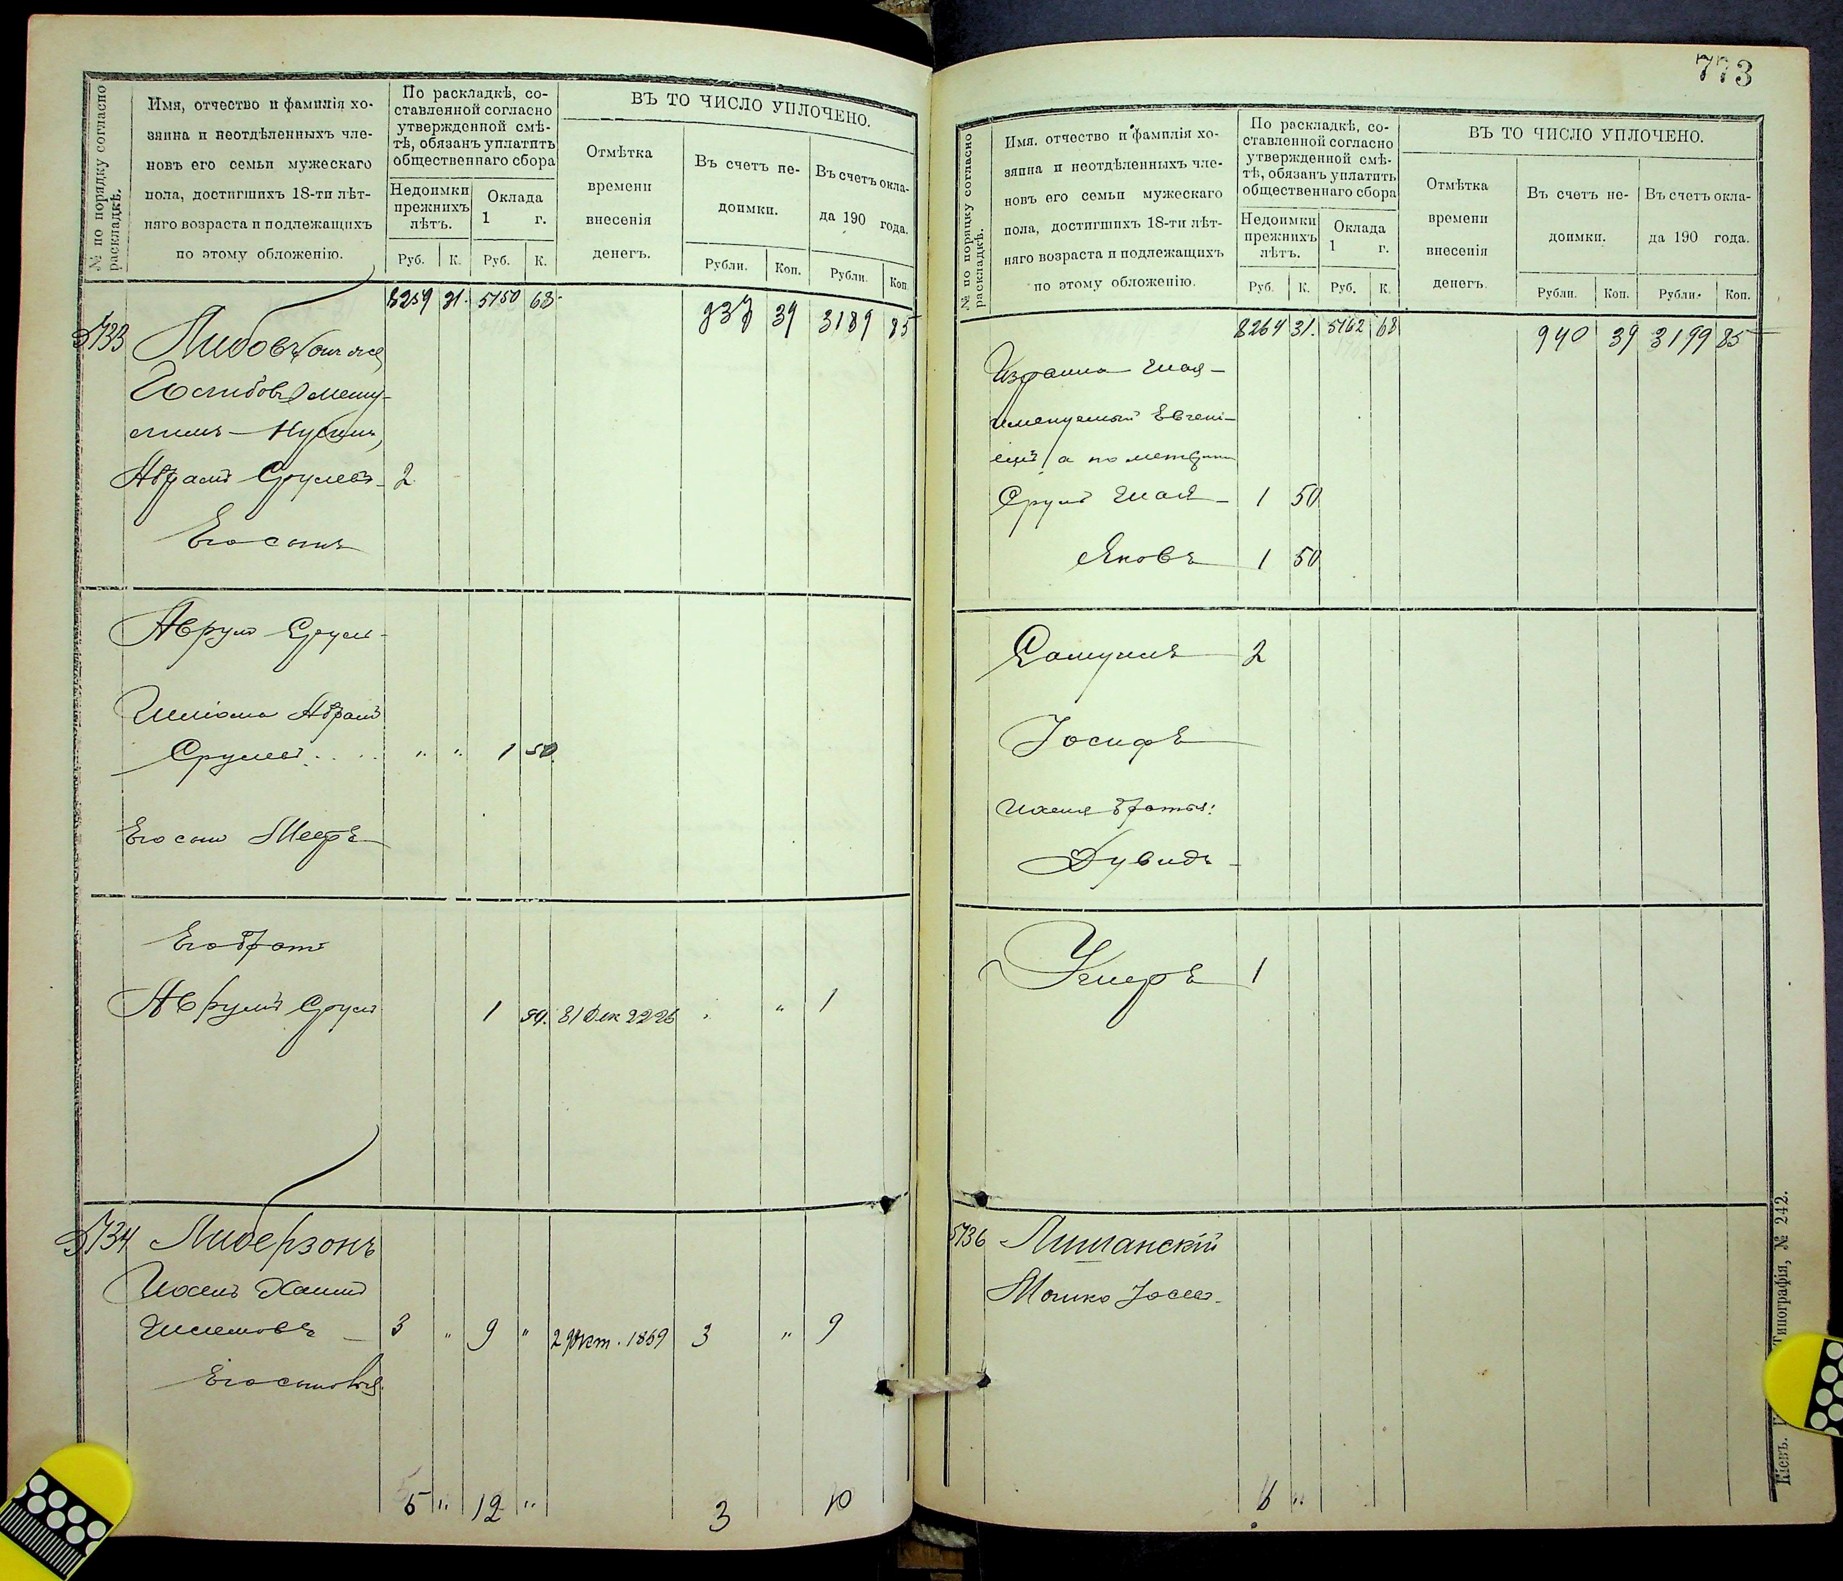 № по порядку согласно раскладкѣ.
Имя, отчество и фамилія хозяина и неотдѣленныхъ членовъ его семьи мужескаго пола, достигшихъ 18-ти лѣтняго возраста и подлежащихъ по этому обложенію.
По раскладкѣ, составленной согласно утвержденной смѣтѣ, обязанъ уплатить общественнаго сбора
Недоимки прежнихъ лѣтъ.
Оклада 1 г.
Руб. К. Руб. К.
ВЪ ТО ЧИСЛО УПЛОЧЕНО.
Отмѣтка времени внесенія денегъ.
Въ счетъ недоимки.
Въ счетъ оклада 190 года.
Рубли. Коп. Рубли. Коп.
8259 31. 5150 68 937 39 3189 85
5133 Либовъ (онъ же
Абрамъ Срулевъ 2
Его сынъ
Аврумъ Сруль
Шліома Абрамъ
Срулевъ . . . " " 1 50.
Его сынъ Мееръ
Его братъ
Аврумъ Сруль 1 50. 31 Дек 2226 " " 1
5134 Либерзонъ
Иосель Хаимъ
3 " 9 " 2 Окт. 1869 3 " 9
Его сыновья:
5 " 12 " 3 10
773
№ по порядку согласно раскладкѣ.
Имя, отчество и фамилія хозяина и неотдѣленныхъ членовъ его семьи мужескаго пола, достигшихъ 18-ти лѣтняго возраста и подлежащихъ по этому обложенію.
По раскладкѣ, составленной согласно утвержденной смѣтѣ, обязанъ уплатить общественнаго сбора
Недоимки прежнихъ лѣтъ.
Оклада 1 г.
Руб. К. Руб. К.
ВЪ ТО ЧИСЛО УПЛОЧЕНО.
Отмѣтка времени внесенія денегъ.
Въ счетъ недоимки.
Въ счетъ оклада 190 года.
Рубли. Коп. Рубли. Коп.
8264 31. 5162 68 940 39 3199 85
именуемый Евгені-
емъ, а по метрики
Сруль Шая 1 50
Яковъ 1 50
Самуилъ 2
Іосифъ
братья:
Дувидъ
Ушеръ 1
5136 Лишанскій
Мошко Іосев.
6 "
Кіевъ. Типографія, № 242.